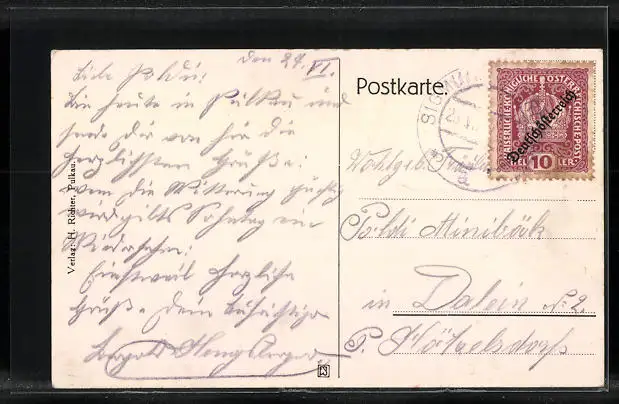 Den 24. VI.
Liebe Poldi!
Bin heute in Pulkau und
sende Dir von hier die
herzlichsten Grüße!
Wenn die Witterung günstig
wird gilts Sonntag ein
Wiedersehen!
Einstweil herzliche
Grüße Dein
Leopold
Verlag: H. Richter, Pulkau.
Postkarte.
KAISERLICHE KÖNIGLICHE ÖSTERREICHISCHE POST
Deutschösterreich
HELLER 10 HELLER
Wohlgeb.
Poldi Minibäck
in Dalein No 2.
P. Hötzelsdorf